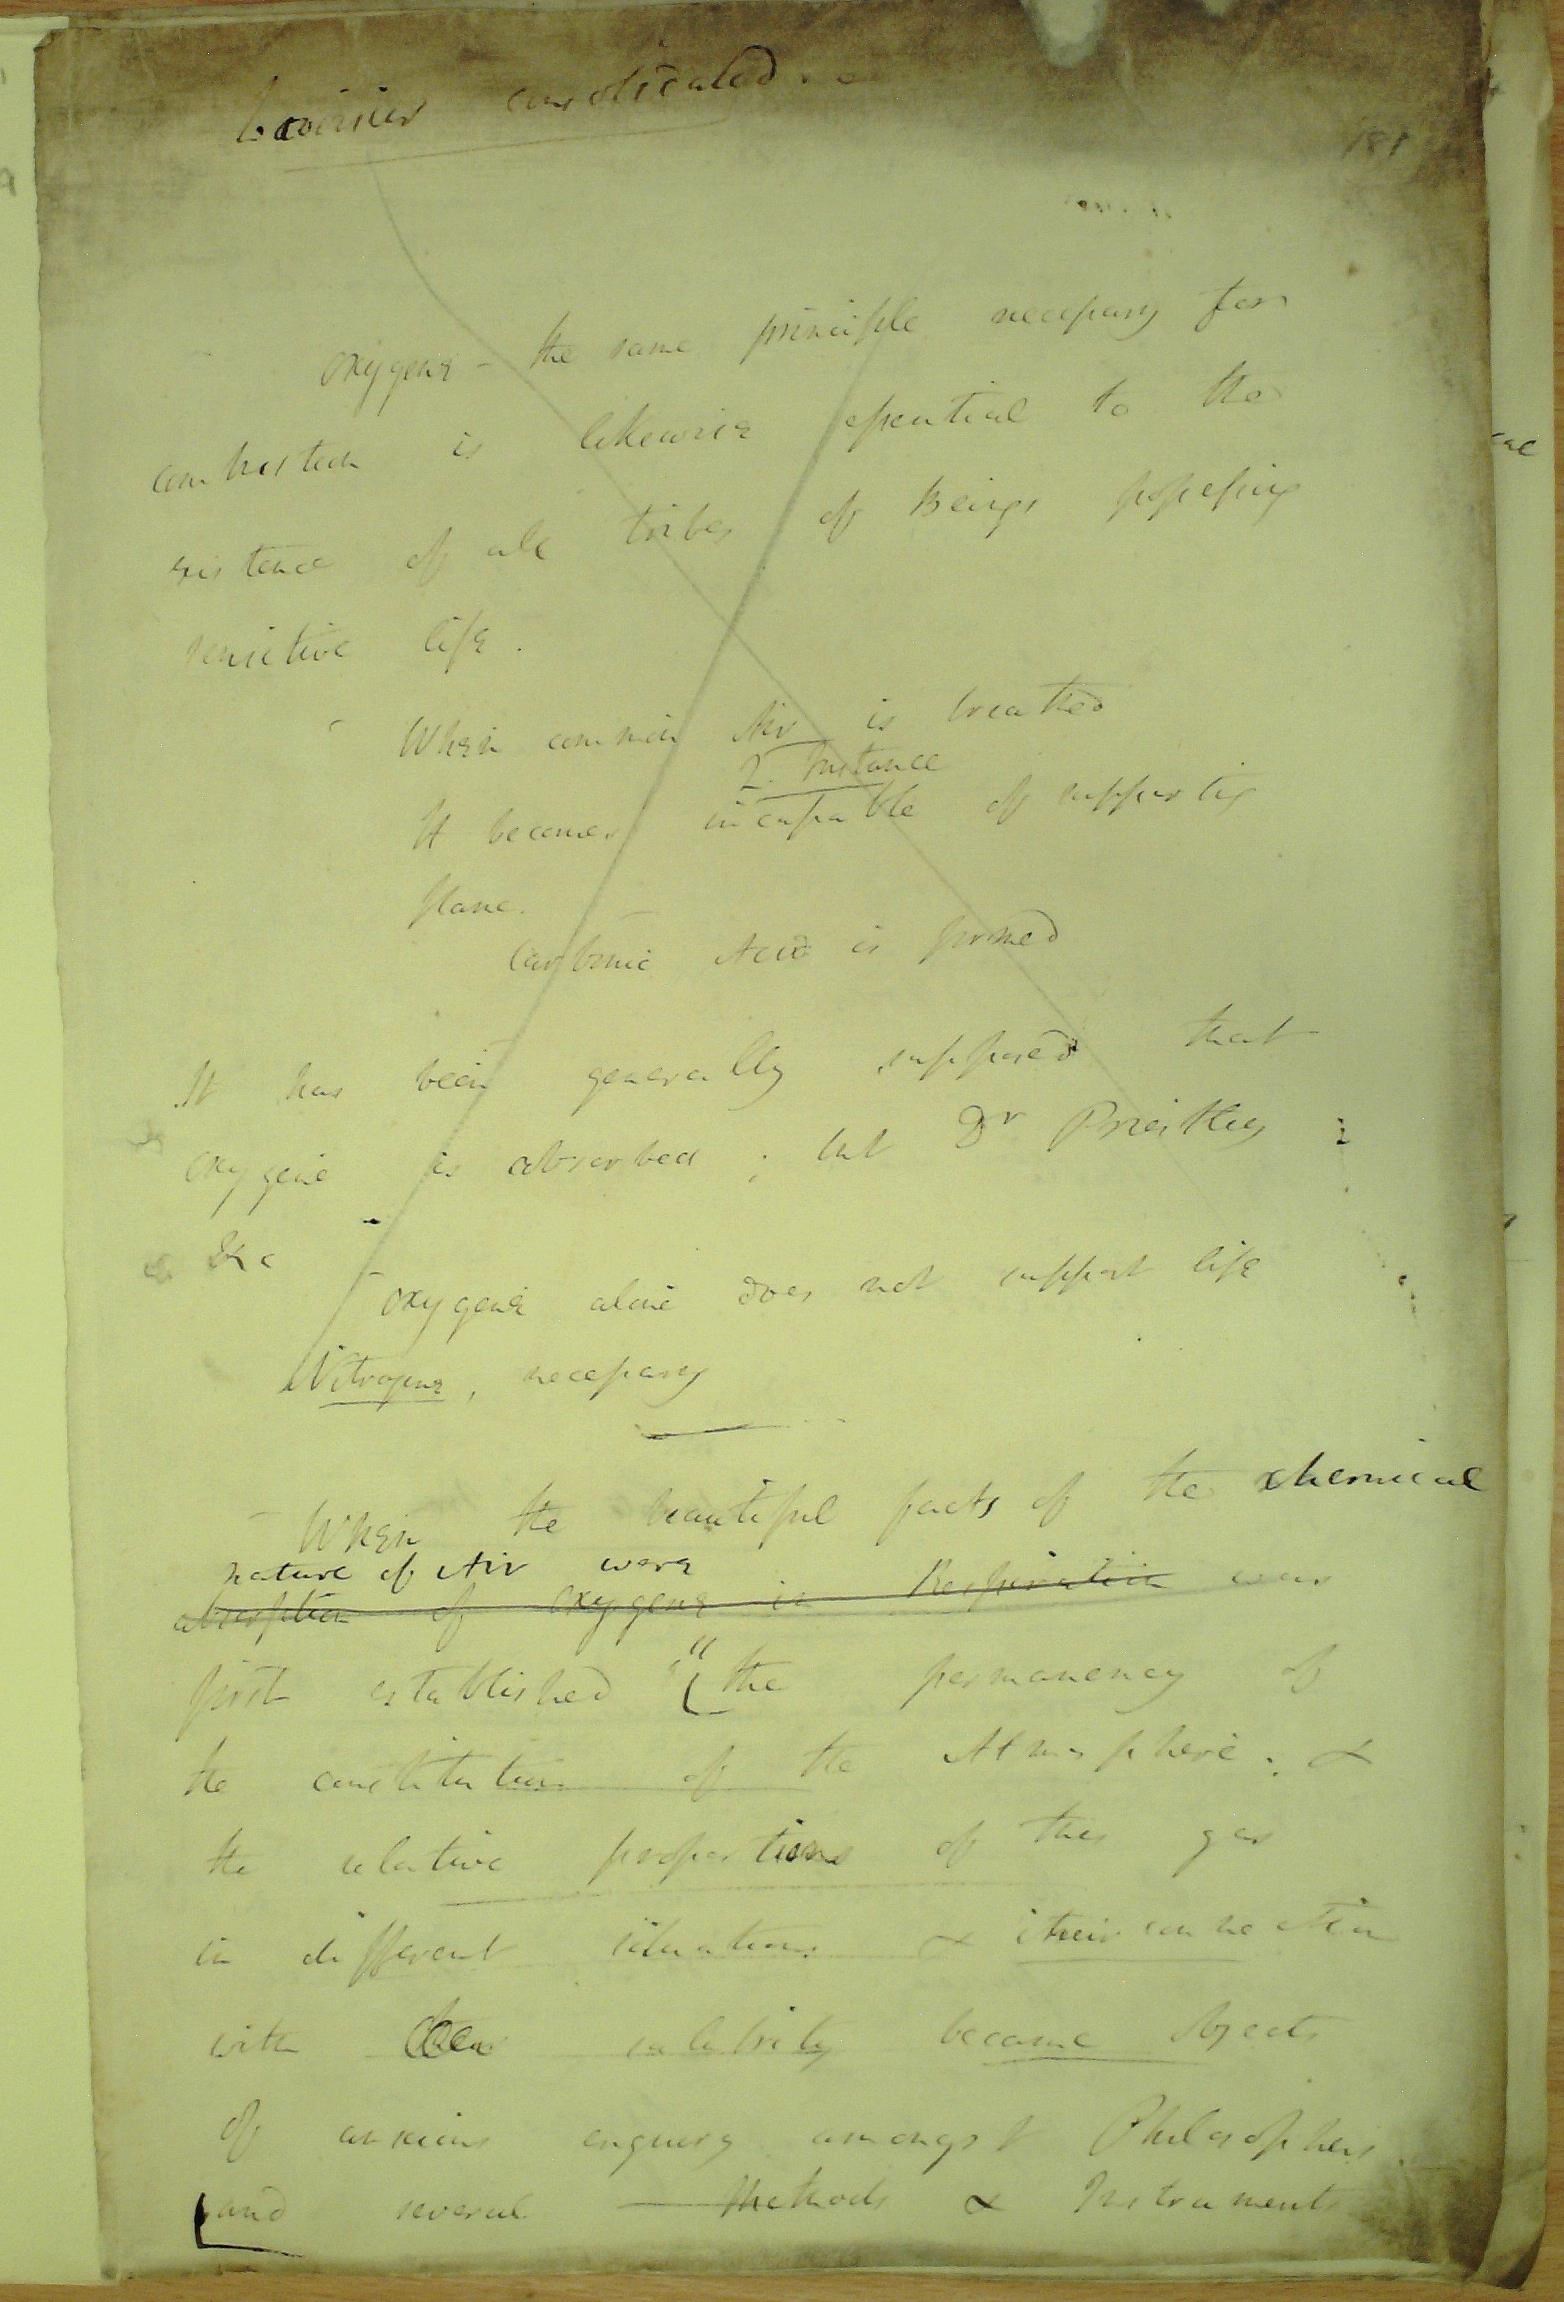 Lavoisier
181
oxygene - the same principle necessary for
combustion is likewise essential to the
existence of all tribes of Beings possessing
sensitive life.
When common Air is breathed
2. Instance
It becomes incapable of supporting
flame.
Carbonic Acid is formed
It has been generally supposed that
oxygene is absorbed ; but Dr Priestley
&c
oxygene alone does not support life
Nitrogene, necessary
When the beautiful facts of the chemical
nature of Air were
absorption of oxygene in Respiration was
first established the permanency of
the constitution of the Atmosphere. &
the relative proportions of this gas
in different situations & their connection
with salubrity became objects
of anxious enquiry amongst Philosophers
and several Methods & Instruments